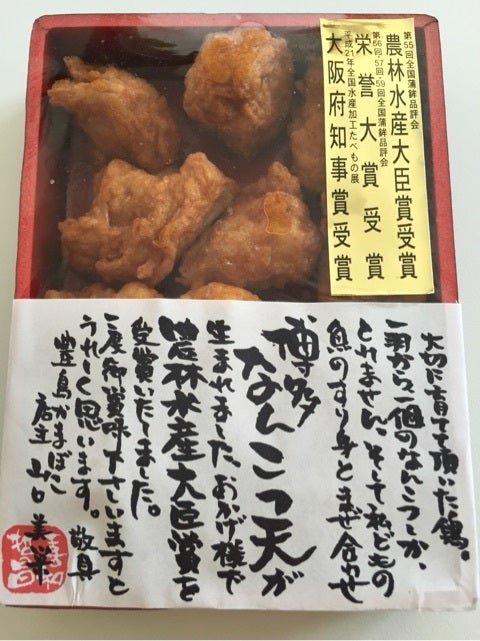 第55回全国蒲鉾品評会
農林水産大臣賞受賞
第56回・57回・59回全国蒲鉾品評会
栄誉大賞受賞
平成21年全国水産加工たべもの展
大阪府知事賞受賞
大切に育てて頂いた鶏。
一羽から一個のなんこつしか、
とれません。そして私どもの
魚のすり身とまぜ合わせ
博多
なんこつ天が
生まれました。おかげ様で
農林水産大臣賞を
受賞いたしました。
一度御賞味下さいますと
うれしく思います。敬具
豊島かまぼこ
店主 山口美栄